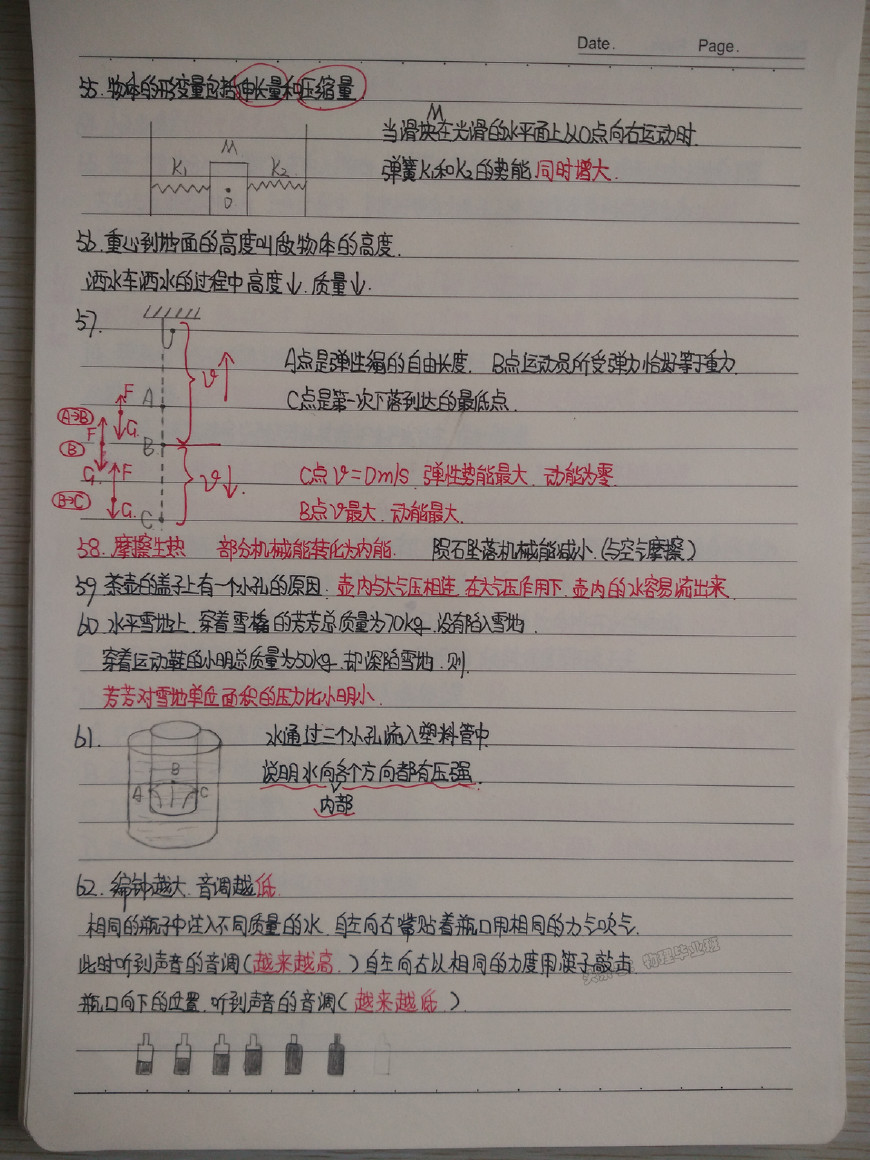 Date. Page.
55. 物体的形变量包括伸长量和压缩量.
当滑块M在光滑的水平面上从O点向右运动时.
弹簧K₁和K₂的势能同时增大.
M
K₁ K₂
O
56. 重心到地面的高度叫做物体的高度.
洒水车洒水的过程中高度↓. 质量↓.
57.
A点是弹性绳的自由长度. B点运动员所受弹力恰好等于重力.
C点是第一次下落到达的最低点.
v↑
A F G
A→B
B F G
B
v↓
B→C F G
C
C点 v=0m/s. 弹性势能最大. 动能为零.
B点v最大. 动能最大.
58. 摩擦生热 部分机械能转化为内能. 陨石坠落机械能减小.(与空气摩擦)
59 茶壶的盖子上有一个小孔的原因: 壶内与大气压相连. 在大气压作用下. 壶内的水容易流出来.
60 水平雪地上. 穿着雪橇的芳芳总质量为70kg. 没有陷入雪地.
穿着运动鞋的小明总质量为50kg. 却深陷雪地. 则.
芳芳对雪地单位面积的压力比小明小.
61. 水通过三个小孔流入塑料管中.
说明水向各个方向都有压强.
内部
B
A C
62. 编钟越大. 音调越低.
相同的瓶子中注入不同质量的水. 自左向右嘴贴着瓶口用相同的力气吹气.
此时听到声音的音调(越来越高.)自左向右以相同的力度用筷子敲击
瓶口向下的位置. 听到声音的音调(越来越低.).
物理毕业班